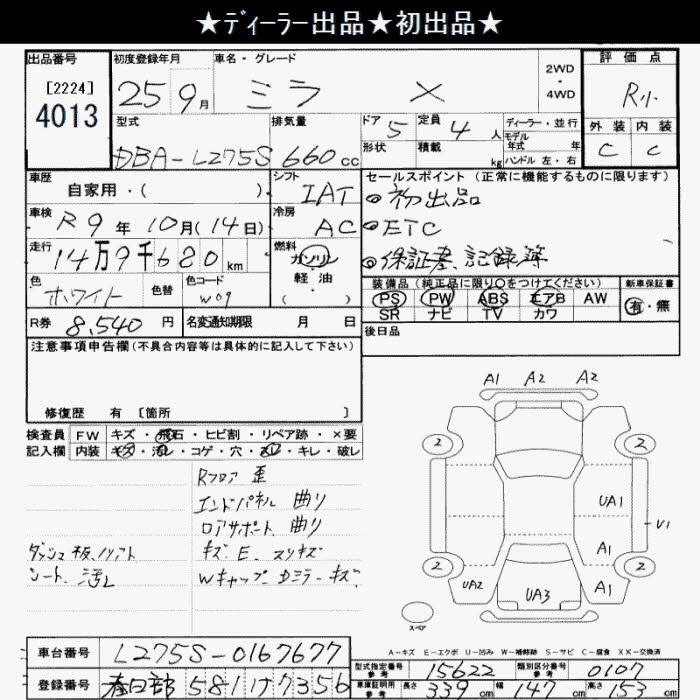 ★ディーラー出品★初出品★
出品番号 初度登録年月 車名・グレード 2WD・4WD 評価点
[2224] 4013 25 9月 ミラ X R小
型式 排気量 ドア 5 定員 4人 ディーラー・並行 外装 内装
DBA-L275S 660cc 形状 積載 kg モデル年式 年 ハンドル 左・右 C C
車歴 自家用・( ) シフト IAT セールスポイント(正常に機能するものに限ります)
車検 R9年10月(14日) 冷房 AC ◎初出品
◎ETC
走行 14万9千680km 燃料 ガソリン・軽油・( ) ◎保証書、記録簿
色 ホワイト 色替 色コード W09 装備品(純正品に限り○をつけてください) 新車保証書
PS PW ABS エアB AW 有・無
SR ナビ TV カワ
R券 8,540円 名変通知期限 月 日 後日品
注意事項申告欄(不具合内容等は具体的に記入して下さい)
修復歴 有 [箇所 ]
検査員記入欄 FW キズ・飛石・ヒビ割・リペア跡・×要
内装 キズ・汚レ・コゲ・穴・スレ・キレ・破レ
Rフロア 歪
エンドパネル 曲り
ロアサポート 曲り
ダッシュ板、ノリアト キズ、E、スリキズ
シート、汚レ Wキャップ、Dミラーキズ
A1 A2 A2
2 2
UA1
U1
A1
2 2
UA2 UA3 A1
スペア
A-キズ E-エクボ U-凹み W-補修跡 S-サビ C-腐食 XX-交換済
車台番号 L275S-0167677 型式指定番号 参考 15622 類別区分番号 参考 0107
登録番号 春日部 581 り 7356 車車証明用 参考 長さ 339cm 幅 147cm 高さ 153cm